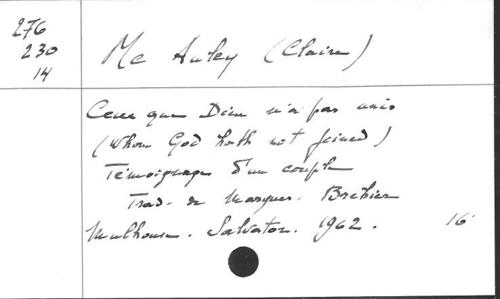 276
230
14
Mc Auley (Claire)
Ceux que Dieu n'a pas unis
(Whom God hath not joined)
Témoignage d'un couple
Trad. de Marques. Brehier
Mulhouse. Salvator. 1962. 16°